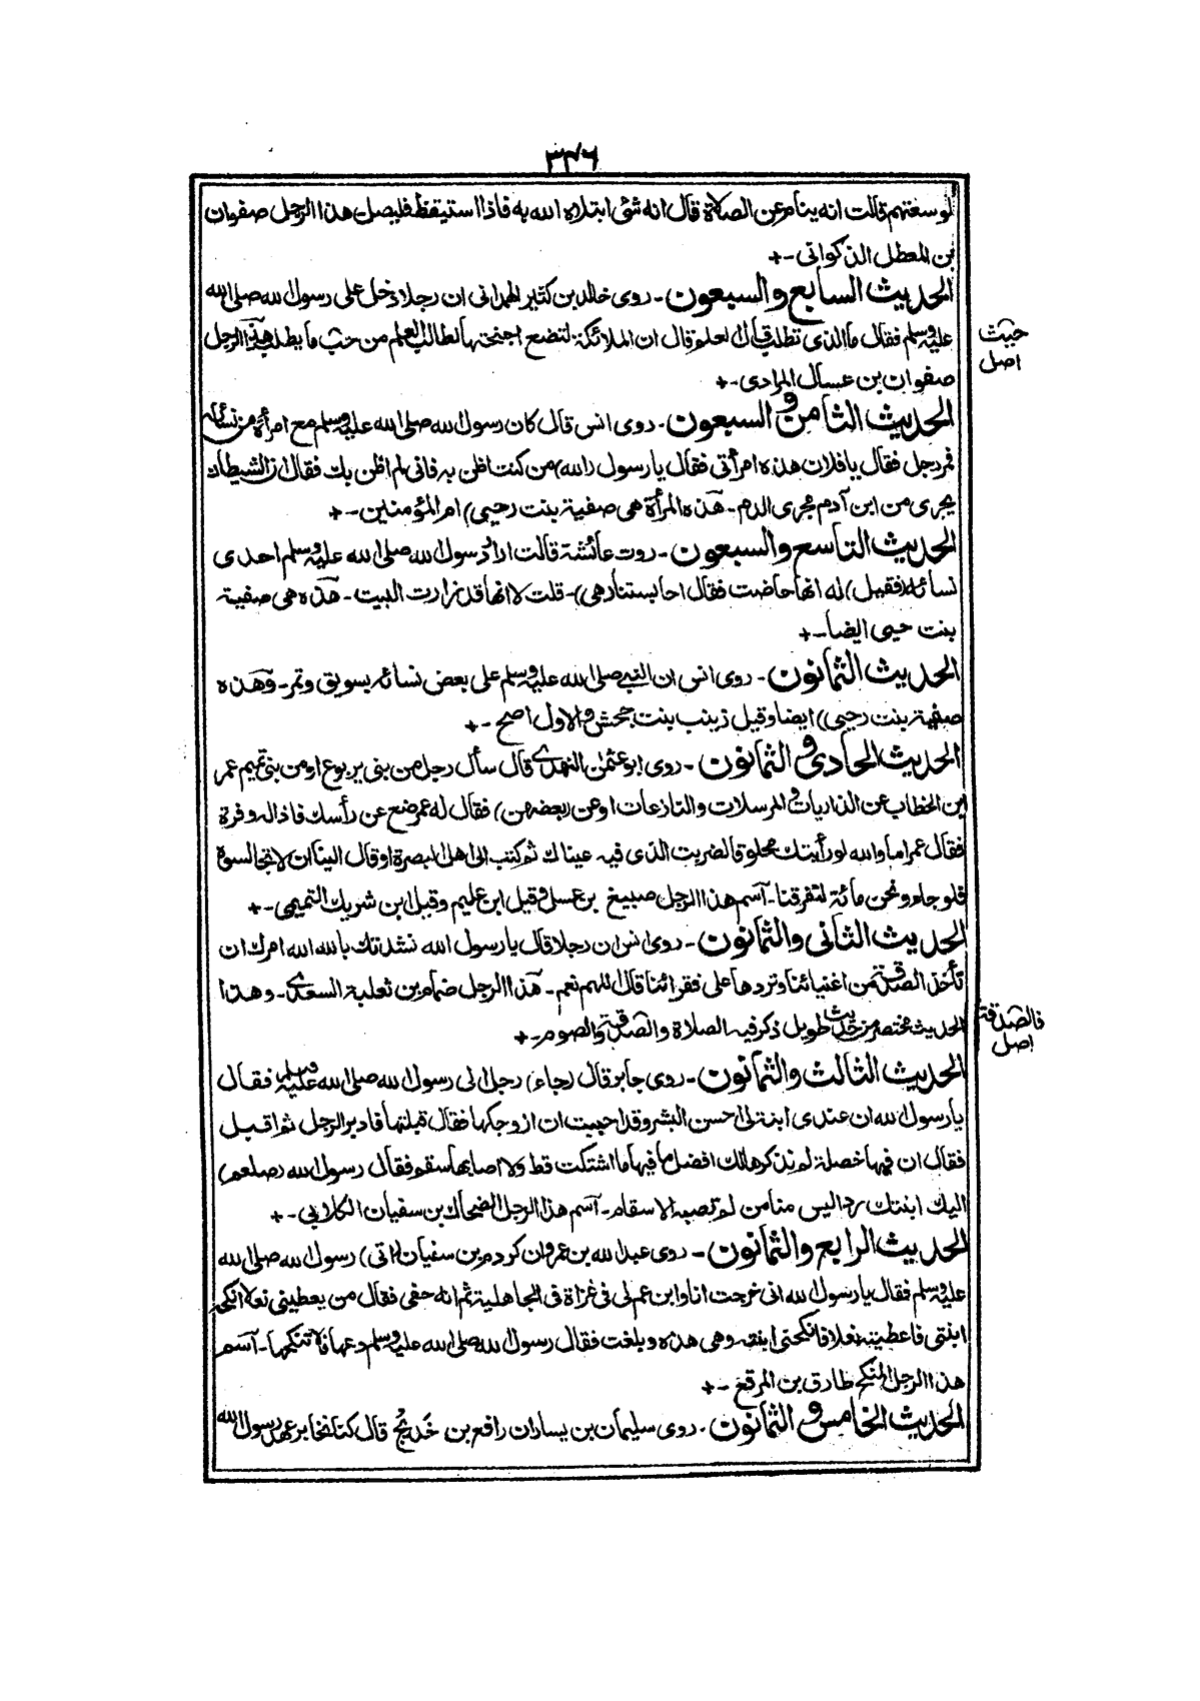 ٣٣٦
لوسعتهم قالت انه ينام عن الصلاة قال انه شئ ابتلاه الله به فاذا استيقظ فليصل هذا الرجل صفوان
بن المعطل الذكواني -+
الحديث السابع والسبعون - روى خالد بن كثير الهمداني ان رجلا دخل على رسول الله صلى الله
عليه وسلم فقال ما الذي تطلب قال العلم قال ان الملائكة لتضع اجنحتها لطالب العلم من حب ما يطلب هذا الرجل
حيث
اصل
صفوان بن عسال المرادى -+
الحديث الثامن والسبعون - روى انس قال كان رسول الله صلى الله عليه وسلم مع امرأة من نسائه
فمر رجل فقال يا فلان هذه امرأتى فقال يا رسول (الله) من كنت اظن به فانى لم اظن بك فقال ان الشيطان
يجرى من ابن آدم مجرى الدم - هذه المرأة هى صفية بنت (حيى) ام المؤمنين -+
الحديث التاسع والسبعون - روت عائشة قالت اراد رسول الله صلى الله عليه وسلم احدى
نسائه (فقيل) له انها حاضت فقال احابستنا (هى) - قلت لا انها قد زارت البيت - هذه هى صفية
بنت حيى ايضا -+
الحديث الثمانون - روى انس ان النبي صلى الله عليه وسلم على بعض نسائه بسويق وتمر - وهذه
صفية بنت (حيى) ايضا وقيل زينب بنت جحش والاول اصح -+
الحديث الحادى والثمانون - روى ابو عثمن النهدى قال سأل رجل من بنى يربوع او من بنى تميم عمر
ابن الخطاب عن الذاريات والمرسلات والنازعات او عن (بعضهن) فقال له عمر ضع عن رأسك فاذا له وفرة
فقال عمر اما والله لو رأيتك محلوقا لضربت الذى فيه عيناك ثم كتب الى اهل البصرة او قال الينا ان لا تجالسوه
فلو جاء ونحن مائة لتفرقنا - آسم هذا الرجل صبيغ بن عسل وقيل ابن عليم وقيل ابن شريك التميمى -+
الحديث الثانى والثمانون - روى انس ان رجلا قال يا رسول الله نشدتك بالله الله امرك ان
تأخذ الصدقة من اغنيائنا وتردها على فقرائنا قال اللهم نعم - هذا الرجل ضمام بن ثعلبة السعدى - وهذا
الحديث مختصر من حديث طويل ذكر فيه الصلاة والصدقة والصوم -+
فالصدقة
اصل
الحديث الثالث والثمانون - روى جابر قال (جاء) رجل الى رسول الله صلى الله عليه وسلم فقال
يا رسول الله ان عندى ابنتى احسن البشر وقد احببت ان ازوجكها فقال قبلتها فادبر الرجل ثم اقبل
فقال ان فيها خصلة لم نذكرها لك افضل ما فيها ما اشتكت قط ولا اصابها سقم فقال رسول الله (صلعم)
اليك ابنتك رد اليس منا من لم تصبه الاسقام - آسم هذا الرجل الضحاك بن سفيان الكلابى -+
الحديث الرابع والثمانون - روى عبد الله بن عمرو ان كردم بن سفيان (اتى) رسول الله صلى الله
عليه وسلم فقال يا رسول الله انى خرجت انا وابن عم لى فى غزاة فى الجاهلية ثم انه حفى فقال من يعطينى نعلا انكحه
ابنتى فاعطيته نعلا فانكحنى ابنته وهى هذه وبلغت فقال رسول الله صلى الله عليه وسلم دعها فلا تنكحها - آسم
هذا الرجل المنكح طارق بن المرقع -+
الحديث الخامس والثمانون - روى سليمان بن يسار ان رافع بن خَدِيجُ قال كنا نخابر عهد رسول الله